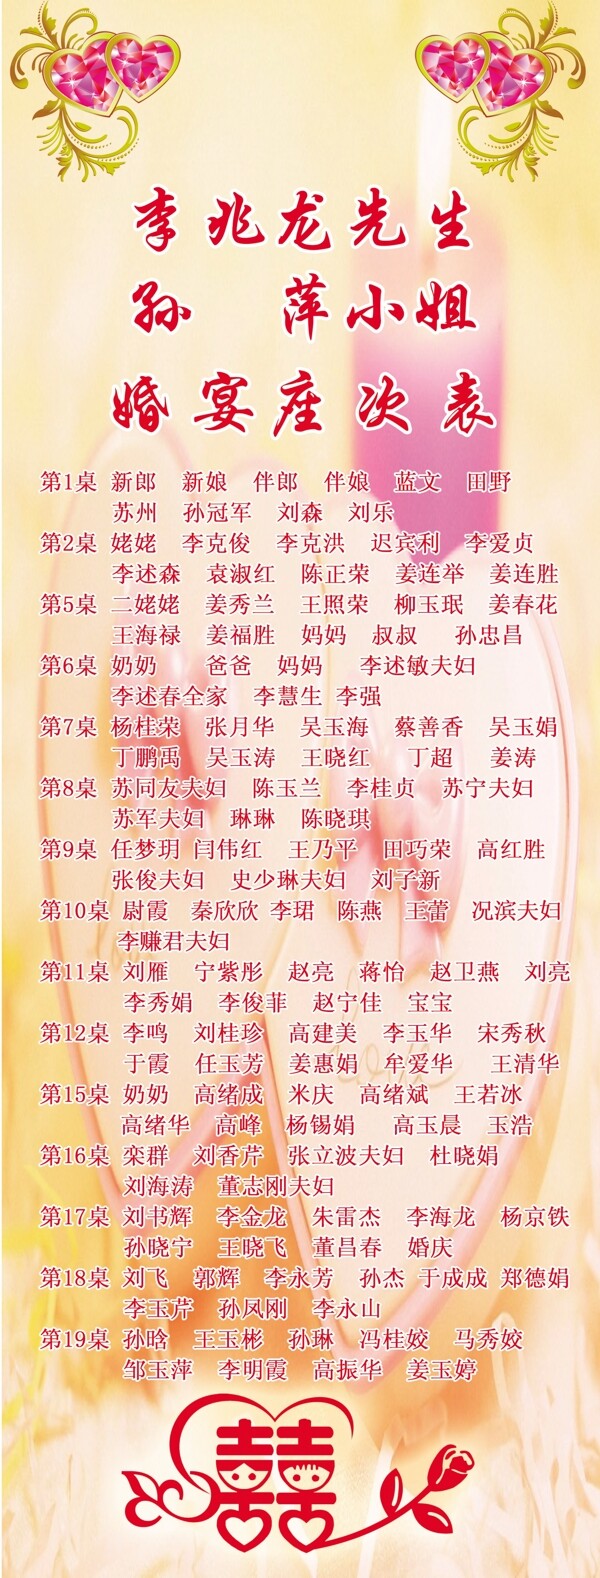 李兆龙先生
孙 萍小姐
婚宴座次表
第1桌 新郎 新娘 伴郎 伴娘 蓝文 田野
苏州 孙冠军 刘森 刘乐
第2桌 姥姥 李克俊 李克洪 迟宾利 李爱贞
李述森 袁淑红 陈正荣 姜连举 姜连胜
第5桌 二姥姥 姜秀兰 王照荣 柳玉珉 姜春花
王海禄 姜福胜 妈妈 叔叔 孙忠昌
第6桌 奶奶 爸爸 妈妈 李述敏夫妇
李述春全家 李慧生 李强
第7桌 杨桂荣 张月华 吴玉海 蔡善香 吴玉娟
丁鹏禹 吴玉涛 王晓红 丁超 姜涛
第8桌 苏同友夫妇 陈玉兰 李桂贞 苏宁夫妇
苏军夫妇 琳琳 陈晓琪
第9桌 任梦玥 闫伟红 王乃平 田巧荣 高红胜
张俊夫妇 史少琳夫妇 刘子新
第10桌 尉霞 秦欣欣 李珺 陈燕 王蕾 况滨夫妇
李赚君夫妇
第11桌 刘雁 宁紫彤 赵亮 蒋怡 赵卫燕 刘亮
李秀娟 李俊菲 赵宁佳 宝宝
第12桌 李鸣 刘桂珍 高建美 李玉华 宋秀秋
于霞 任玉芳 姜惠娟 牟爱华 王清华
第15桌 奶奶 高绪成 米庆 高绪斌 王若冰
高绪华 高峰 杨锡娟 高玉晨 玉浩
第16桌 栾群 刘香芹 张立波夫妇 杜晓娟
刘海涛 董志刚夫妇
第17桌 刘书辉 李金龙 朱雷杰 李海龙 杨京铁
孙晓宁 王晓飞 董昌春 婚庆
第18桌 刘飞 郭辉 李永芳 孙杰 于成成 郑德娟
李玉芹 孙凤刚 李永山
第19桌 孙晗 王玉彬 孙琳 冯桂姣 马秀姣
邹玉萍 李明霞 高振华 姜玉婷
囍